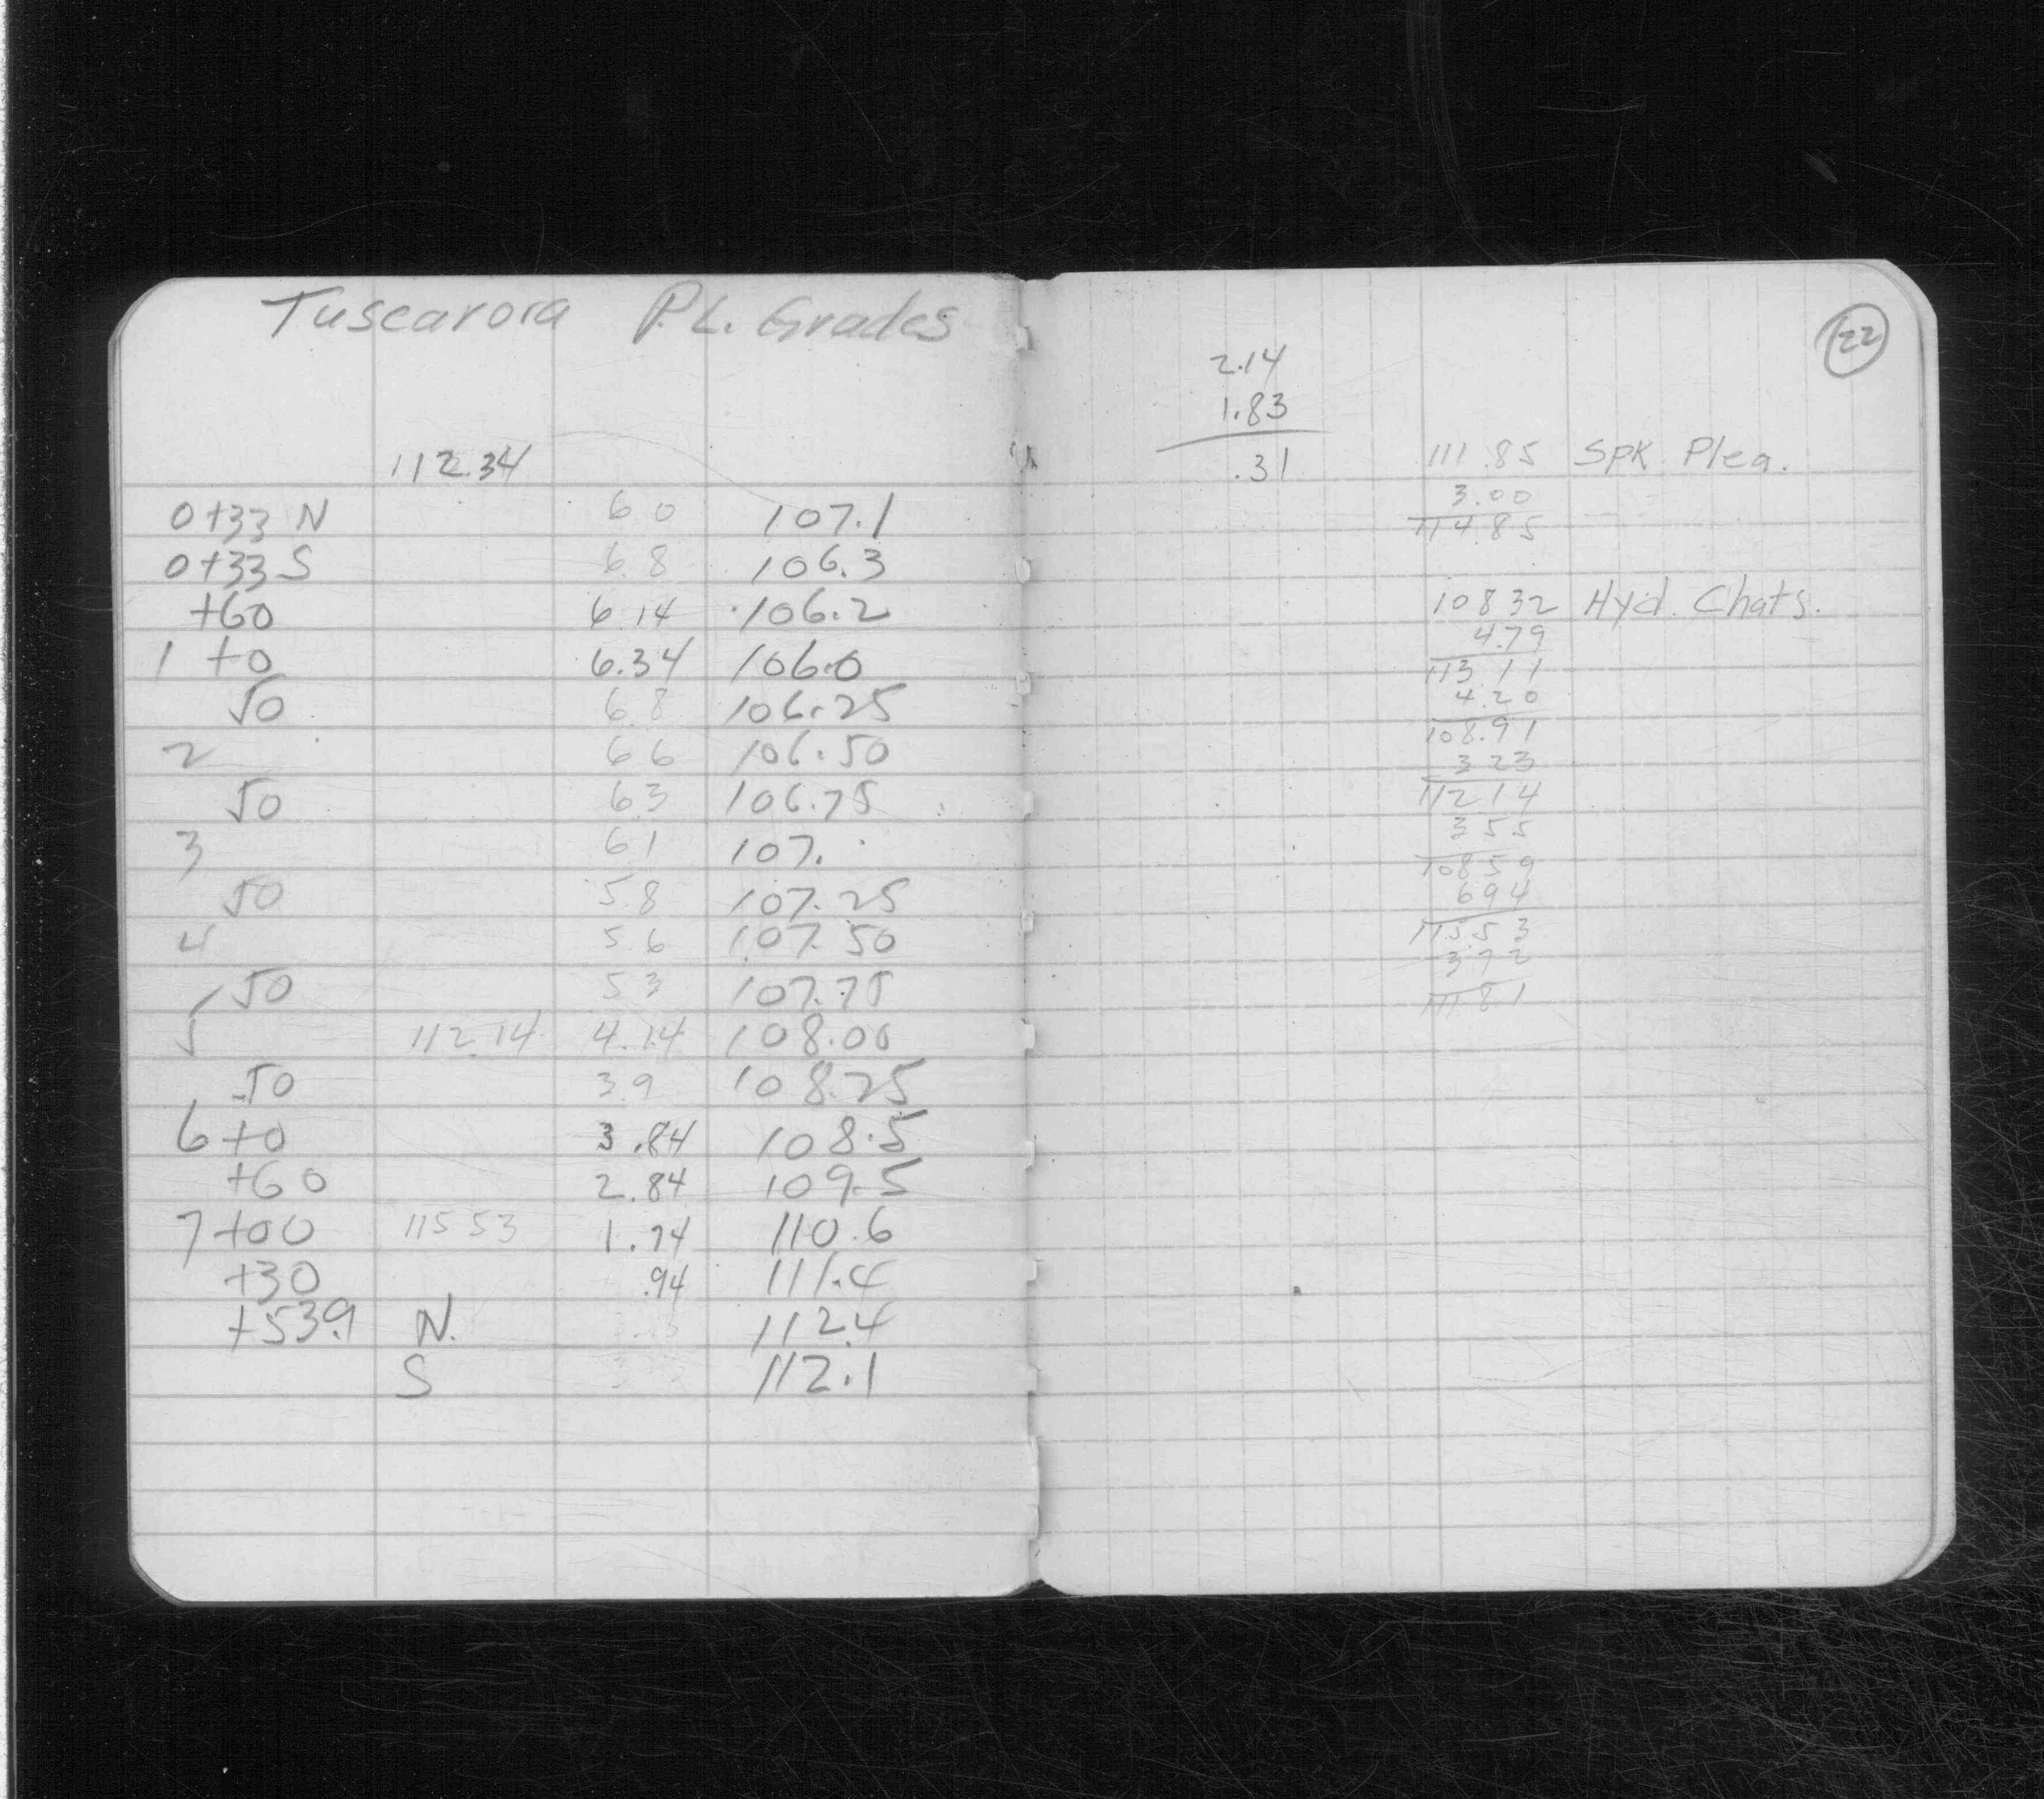 Tuscarora P.L. Grades
112.34
0+33 N 6 0 107.1
0+33 S 6.8 106.3
+60 6 14 106.2
1 +0 6.34 106.0
50 6 8 106.25
2 6 6 106.50
50 6 3 106.75
3 6 1 107.
50 5.8 107.25
4 5 6 107.50
50 5 3 107.75
5 112.14 4.14 108.00
50 3 9 108.25
6+0 3.84 108.5
+60 2.84 109.5
7+00 115 53 1.74 110.6
+30 .94 111.4
+53.9 N. 112.4
S 112.1
22
2.14
1.83
.31
111.85 Spk Plea.
3.00
114.85
108 32 Hyd. Chats.
4.79
113 11
4.20
108.91
3 23
112 14
3 55
108 59
6 94
115.53
3 72
111.81